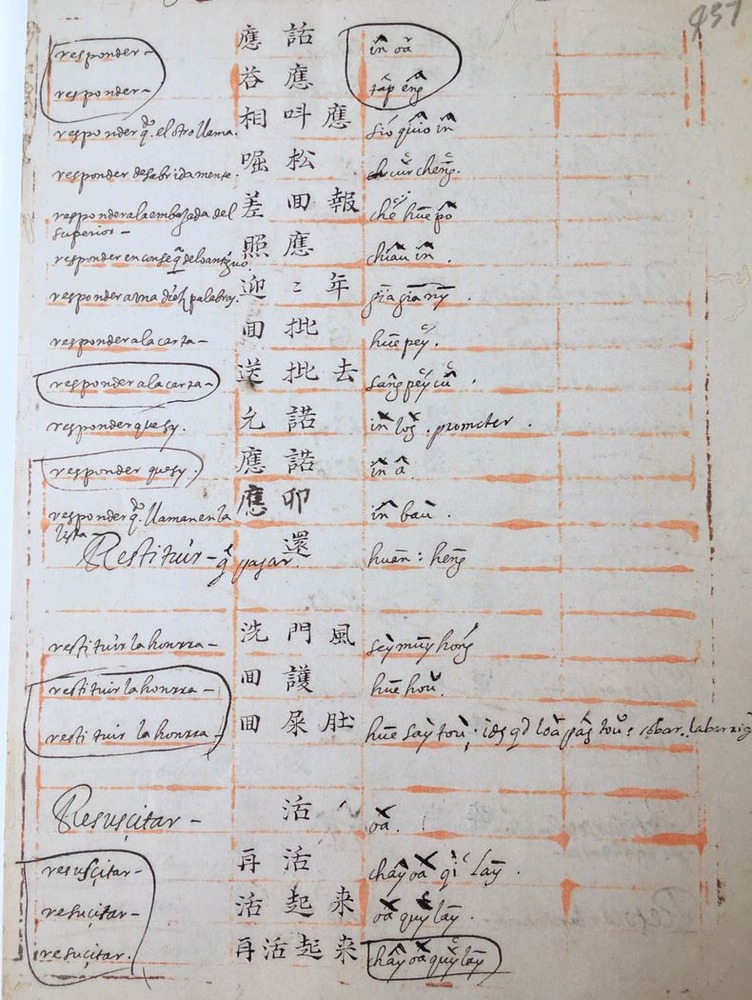 937
responder — 應 話 în oâ
responder — 答 應 tâp êng
responder q̃. el otro llama. 相 叫 應 sió quìo în
responder desabridamente. 啒 松 cheng.
responder ala embajada del 差 回 報 chê hûe pò
superior —
responder en conseq̃ delo antiguo 照 應 chiàu în.
responder a una dich palabra. 迎 〻 年 gîa gîa nŷ.
responder ala carta — 回 批 hûe pey.
responder ala carta — 送 批 去 sàng pey cù.
responder que sy. 允 諾 în log. prometer.
responder que sy. 應 諾 în â.
responder q̃. llaman en la 應 卯 în baù.
lista —
Restituir — q̃ pagar. 還 huân: hêng
restituir la honrra — 洗 門 風 sèy mûy hong
restituir la honrra — 回 護 hûe hoũ.
restituir la honrra — 回 屎 肚 hûe saỳ toù: sobar. la barrig
Resuscitar — 活 oã.
resusçitar — 再 活 chaỹ oã qì laŷ.
resuçitar — 活 起 来 oã quỳ laŷ.
resuçitar. 再 活 起 来 chaỹ oã quỳ laŷ